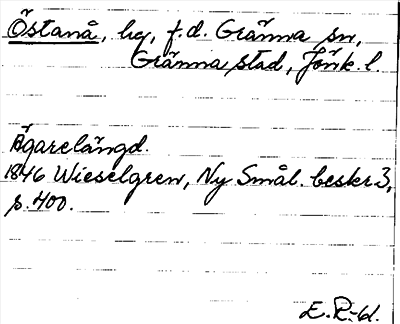 Östanå, hg, f.d. Gränna sn,
Gränna stad, Jönk. l.
Ägarelängd.
1846 Wieselgren, Ny Smål. beskr 3,
s. 400.
E. R-d.